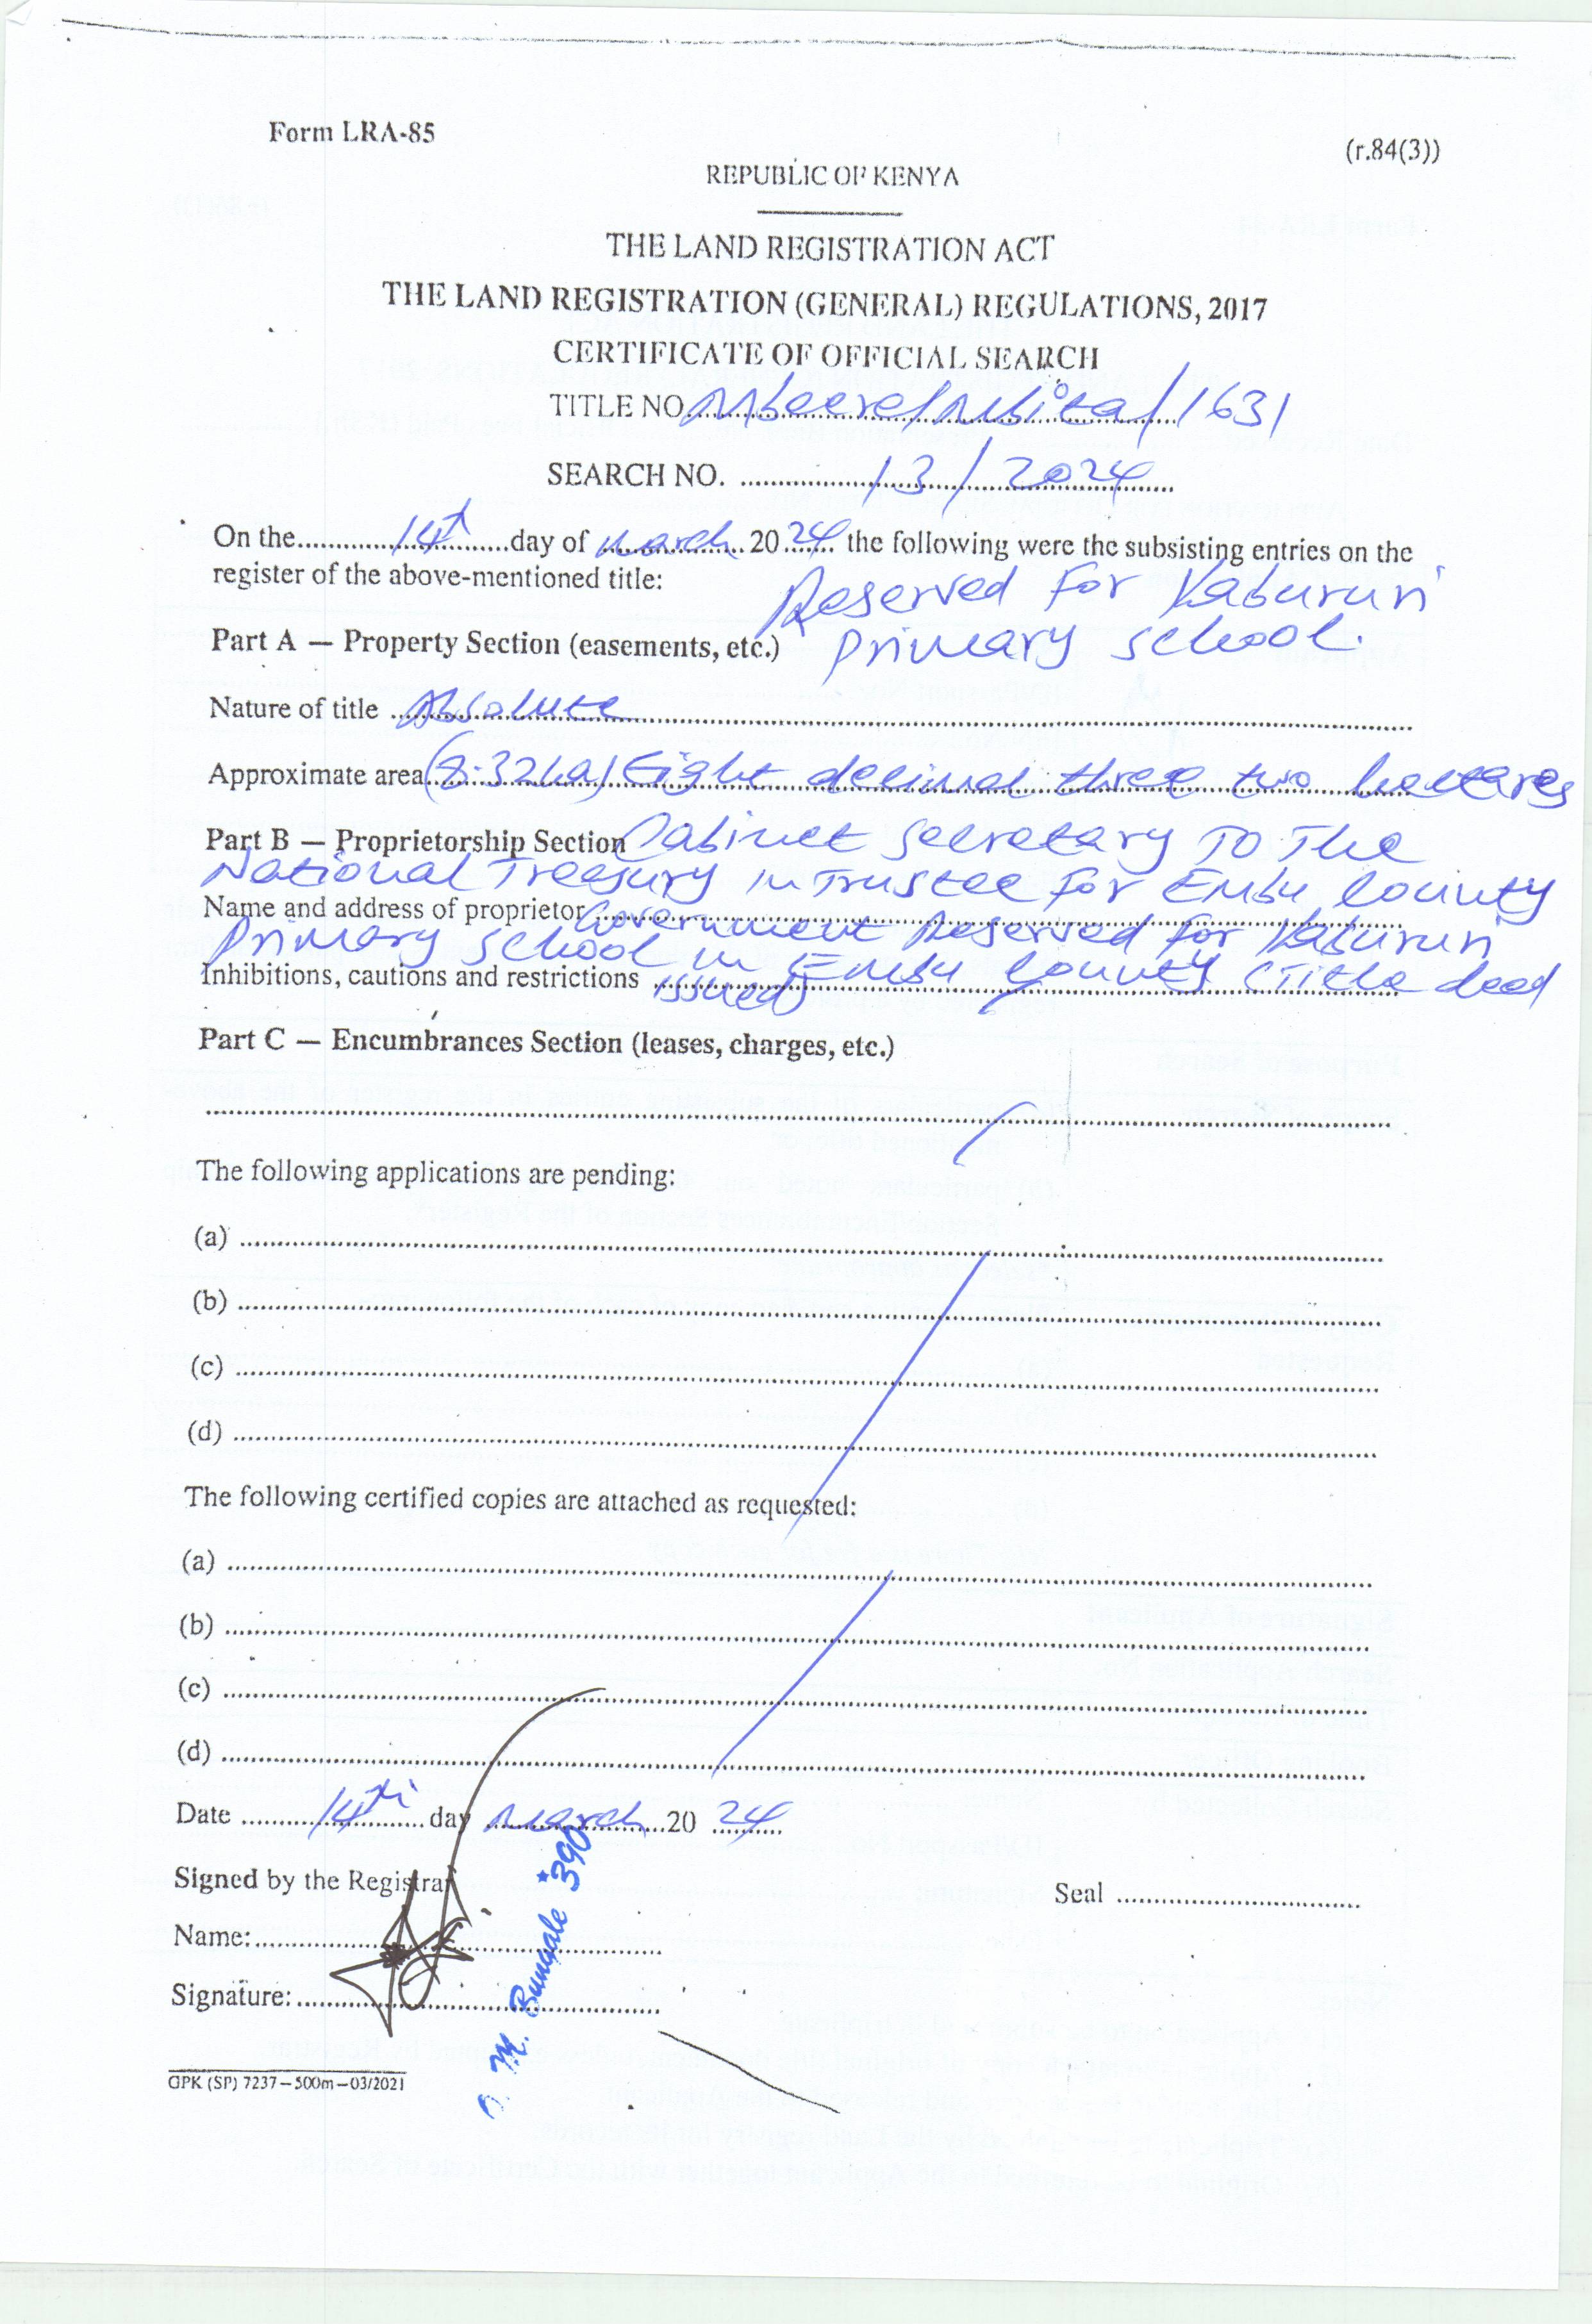 Form LRA-85
(r.84(3))
REPUBLIC OF KENYA
THE LAND REGISTRATION ACT
THE LAND REGISTRATION (GENERAL) REGULATIONS, 2017
CERTIFICATE OF OFFICIAL SEARCH
TITLE NO. Mbeere/Mbita/1631
SEARCH NO. 13/2024
On the 14th day of March 2024 the following were the subsisting entries on the
register of the above-mentioned title:
Reserved For Kabururi
Part A — Property Section (easements, etc.) Primary school.
Nature of title Absolute
Approximate area (8.32ha) Eight decimal three two hectares
Part B — Proprietorship Section Cabinet Secretary To The
National Treasury in Trustee For Embu County
Name and address of proprietor Government Reserved for Kabururi
Primary school in Embu County (Title deed
Inhibitions, cautions and restrictions issued)
Part C — Encumbrances Section (leases, charges, etc.)
The following applications are pending:
(a)
(b)
(c)
(d)
The following certified copies are attached as requested:
(a)
(b)
(c)
(d)
Date 14th day March 2024
Signed by the Registrar
Seal
Name:
Signature:
M. Bungale *390
GPK (SP) 7237—500m—03/2021